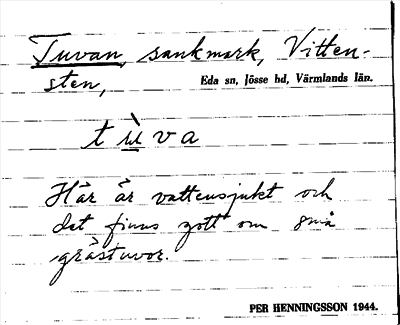 Tuvan, sankmark, Vitten-
sten,
Eda sn, Jösse hd, Värmlands län.
t ù v a
Här är vattensjukt och
det finns gott om små
grästuvor.
PER HENNINGSSON 1944.